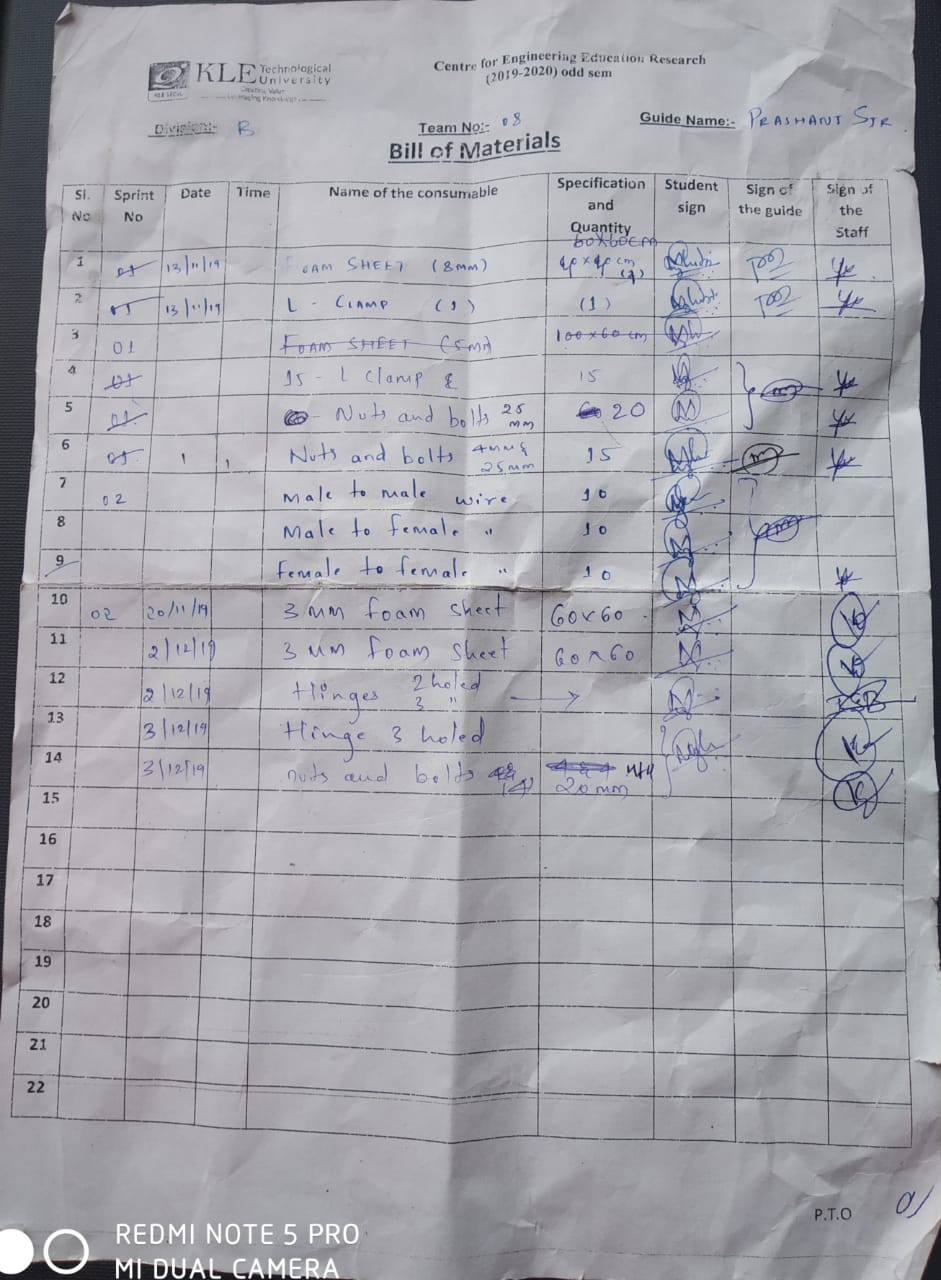 KLE Technological University
Creating Value
Leveraging Knowledge
KLE TECH
Centre for Engineering Education Research
(2019-2020) odd sem
Division:- B
Team No:- 08
Guide Name:- PRASHANT SIR
Bill of Materials
Sl. No Sprint No Date Time Name of the consumable Specification and Quantity Student sign Sign of the guide Sign of the Staff
1 01 13/11/19 FOAM SHEET (8mm) 60x60cm
2 01 13/11/19 L - CLAMP (1) (1)
3 01 FOAM SHEET (5mm) 100x60 cm
4 01 15 - L Clamp 15
5 01 - Nuts and bolts 25 mm 20
6 01 Nuts and bolts 4mm & 25mm 15
7 02 Male to male wire 10
8 Male to female " 10
9 Female to female " 10
10 02 20/11/19 3 mm foam sheet 60x60
11 2/12/19 3 mm foam sheet 60x60
12 2/12/19 Hinges 2 holed 3 "
13 3/12/19 Hinge 3 holed
14 3/12/19 nuts and bolts 20mm
15
16
17
18
19
20
21
22
P.T.O
REDMI NOTE 5 PRO
MI DUAL CAMERA